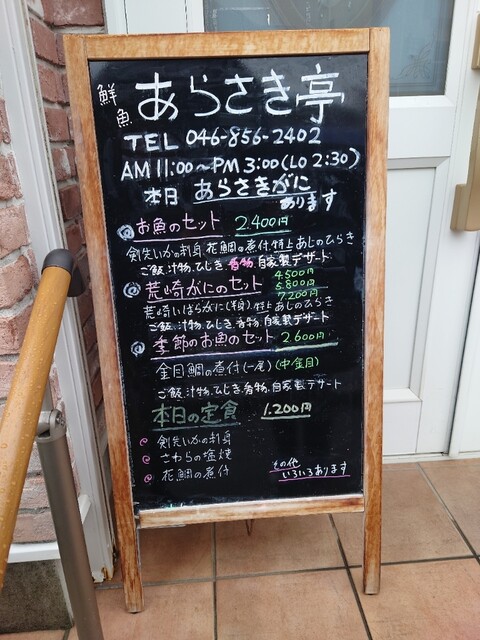 鮮魚 あらさき亭
TEL 046-856-2402
AM 11:00〜PM 3:00(LO 2:30)
本日 あらさきがに
あります
お魚のセット 2.400円
剣先いかの刺身.花鯛の煮付.特上あじのひらき
ご飯.汁物.ひじき.香物.自家製デザート
荒崎がにのセット 4.500円
5.800円
7.200円
荒崎いばらがに(半身).特上あじのひらき
ご飯.汁物.ひじき.香物.自家製デザート
季節のお魚のセット 2.600円
金目鯛の煮付(一尾)(中金目)
ご飯.汁物.ひじき.香物.自家製デザート
本日の定食 1.200円
剣先いかの刺身
さわらの塩焼
花鯛の煮付
その他
いろいろあります